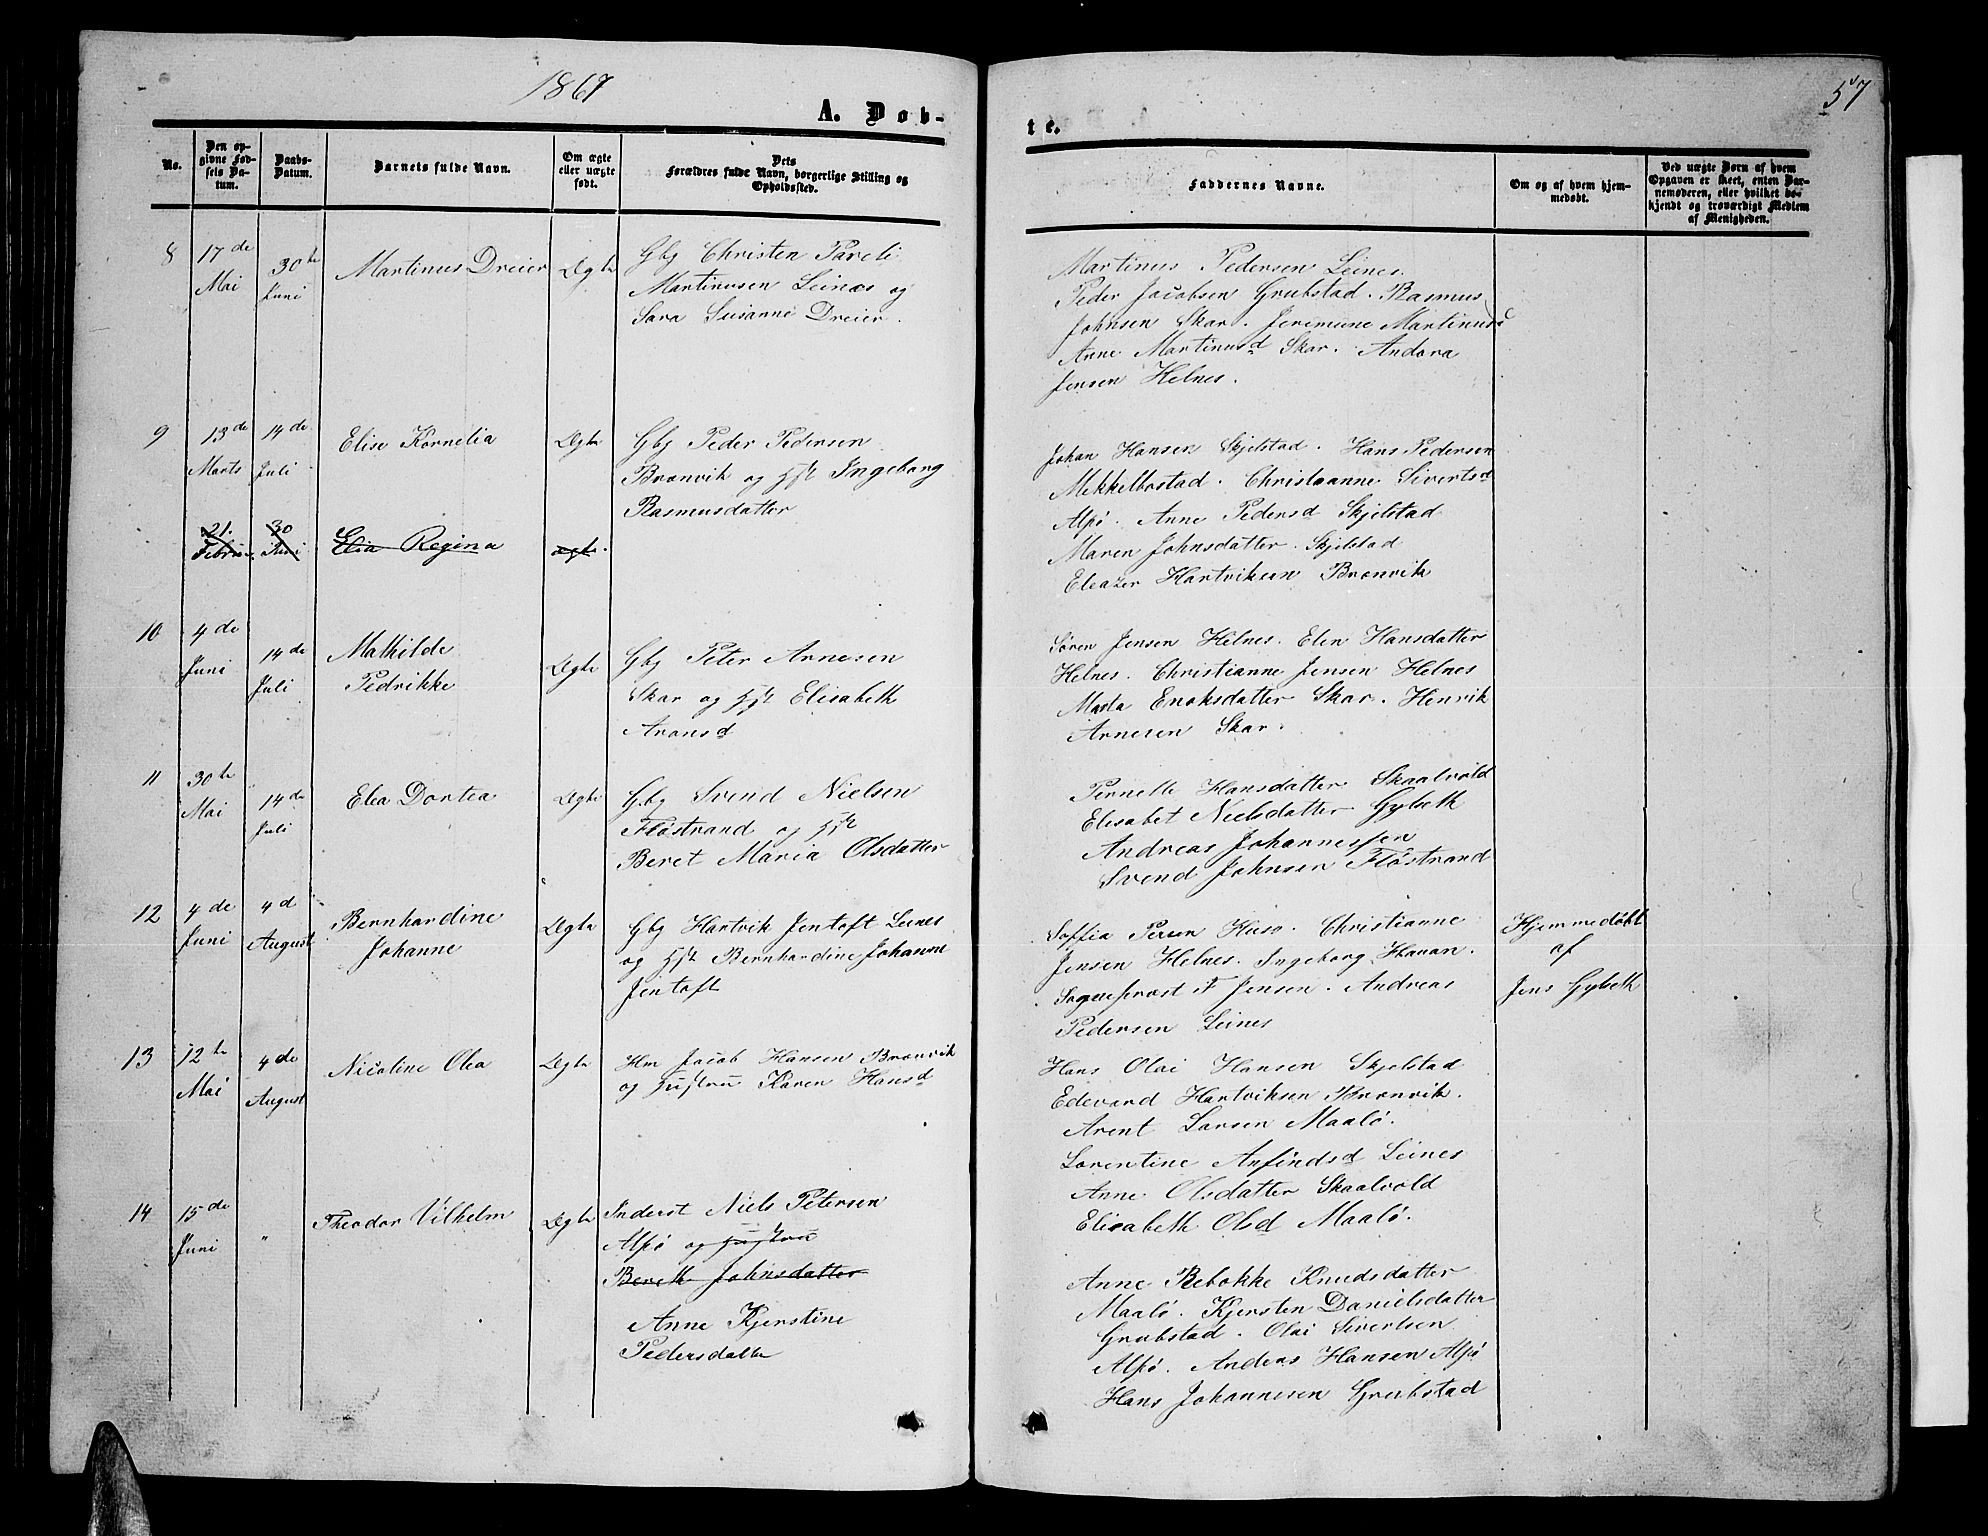 1867
57
A. Døb-
te.
No.
Den op-
givne Fød-
sels Da-
tum.
Daabs-
Datum.
Barnets fulde Navn.
Om ægte
eller uægte
født.
Dets
Forældres fulde Navn, borgerlige Stilling og
Opholdssted.
Faddernes Navne.
Om og af hvem hjem-
medøbt.
Ved uægte Børn af hvem
Opgaven er skeet, enten Bar-
nemoderen, eller hvilket be-
kjendt og troværdigt Medlem
af Menigheden.
8
17de
Mai
30te
Juni
Martinus Dreier
Ægte
Gbg Christen Pareli
Martinusen Leines og
Sara Susanne Dreier.
Martinus Pedersen Leines.
Peder Jacobsen Grubstad. Rasmus
Johnsen Skar. Jeremine Martinusd
Anne Martinusd Skar. Andora
Jensen Helnes.
9
13de
Marts
14de
Juli
Elise Kornelia
Ægte
Gbg Peder Pedersen
Brænvik og Hst Ingeborg
Rasmusdatter
Johan Hansen Skjelstad. Hans Pedersen
Mekkelbostad. Christianne Sivertsd
Alpø. Anne Pedersd Skjelstad
Maren Johnsdatter. Skjelstad
Eleazer Hartviksen Brænvik
21.
Februar
30
Juni
Elia Regina
ægte.
10
4de
Juni
14de
Juli
Mathilde
Pedrikke
Ægte
Gbg Peter Arnesen
Skar og Hst Elisabeth
Aronsd
Søren Jensen Helnes. Elen Hansdatter
Helnes. Christianne Jensen Helnes
Marta Enoksdatter Skar. Henrik
Arnesen Skar.
11
30te
Mai
14de
Juli
Elea Dortea
Ægte
Gbg Svend Nielsen
Fløstrand og Hst
Beret Maria Olsdatter
Pernelle Hansdatter Skaalvold
Elisabet Nielsdatter Gylseth
Andreas Johannesen
Svend Johnsen Fløstrand
12
4de
Juni
4d
August
Bernhardine
Johanne
Ægte
Gbg Hartvik Jentoft Leines
og Hst Bernhardine Johanne
Jentoft
Soffia Husø. Christianne
Jensen Helnes. Ingeborg
Sognepræst F Jensen. Andreas
Pedersen Leines
Hjemmedøbt
af
Jens Gylseth
13
12te
Mai
4de
August
Nicoline Olea
Ægte
Hm Jacob Hansen Brænvik
og Hustru Karen Hansd
Hans Olai Hansen Skjelstad
Edevard Hartviksen Brænvik.
Arent Larsen Maalø.
Lorentine Anfindsd Leines
Anne Olsdatter Skaalvold
Elisabeth Olsd Maalø.
14
15de
Juni
"
Theodor Vilhelm
Ægte
Inderst Niels Petersen
Alpø og Hustru
Bereth Johnsdatter
Anne Kjerstine
Pedersdatter
Anne Rebekke Knudsdatter
Maalø. Kjersten Danielsdatter
Grubstad. Olai Sivertsen
Alpø. Anders Hansen Alpø
Hans Johannesen Grubstad